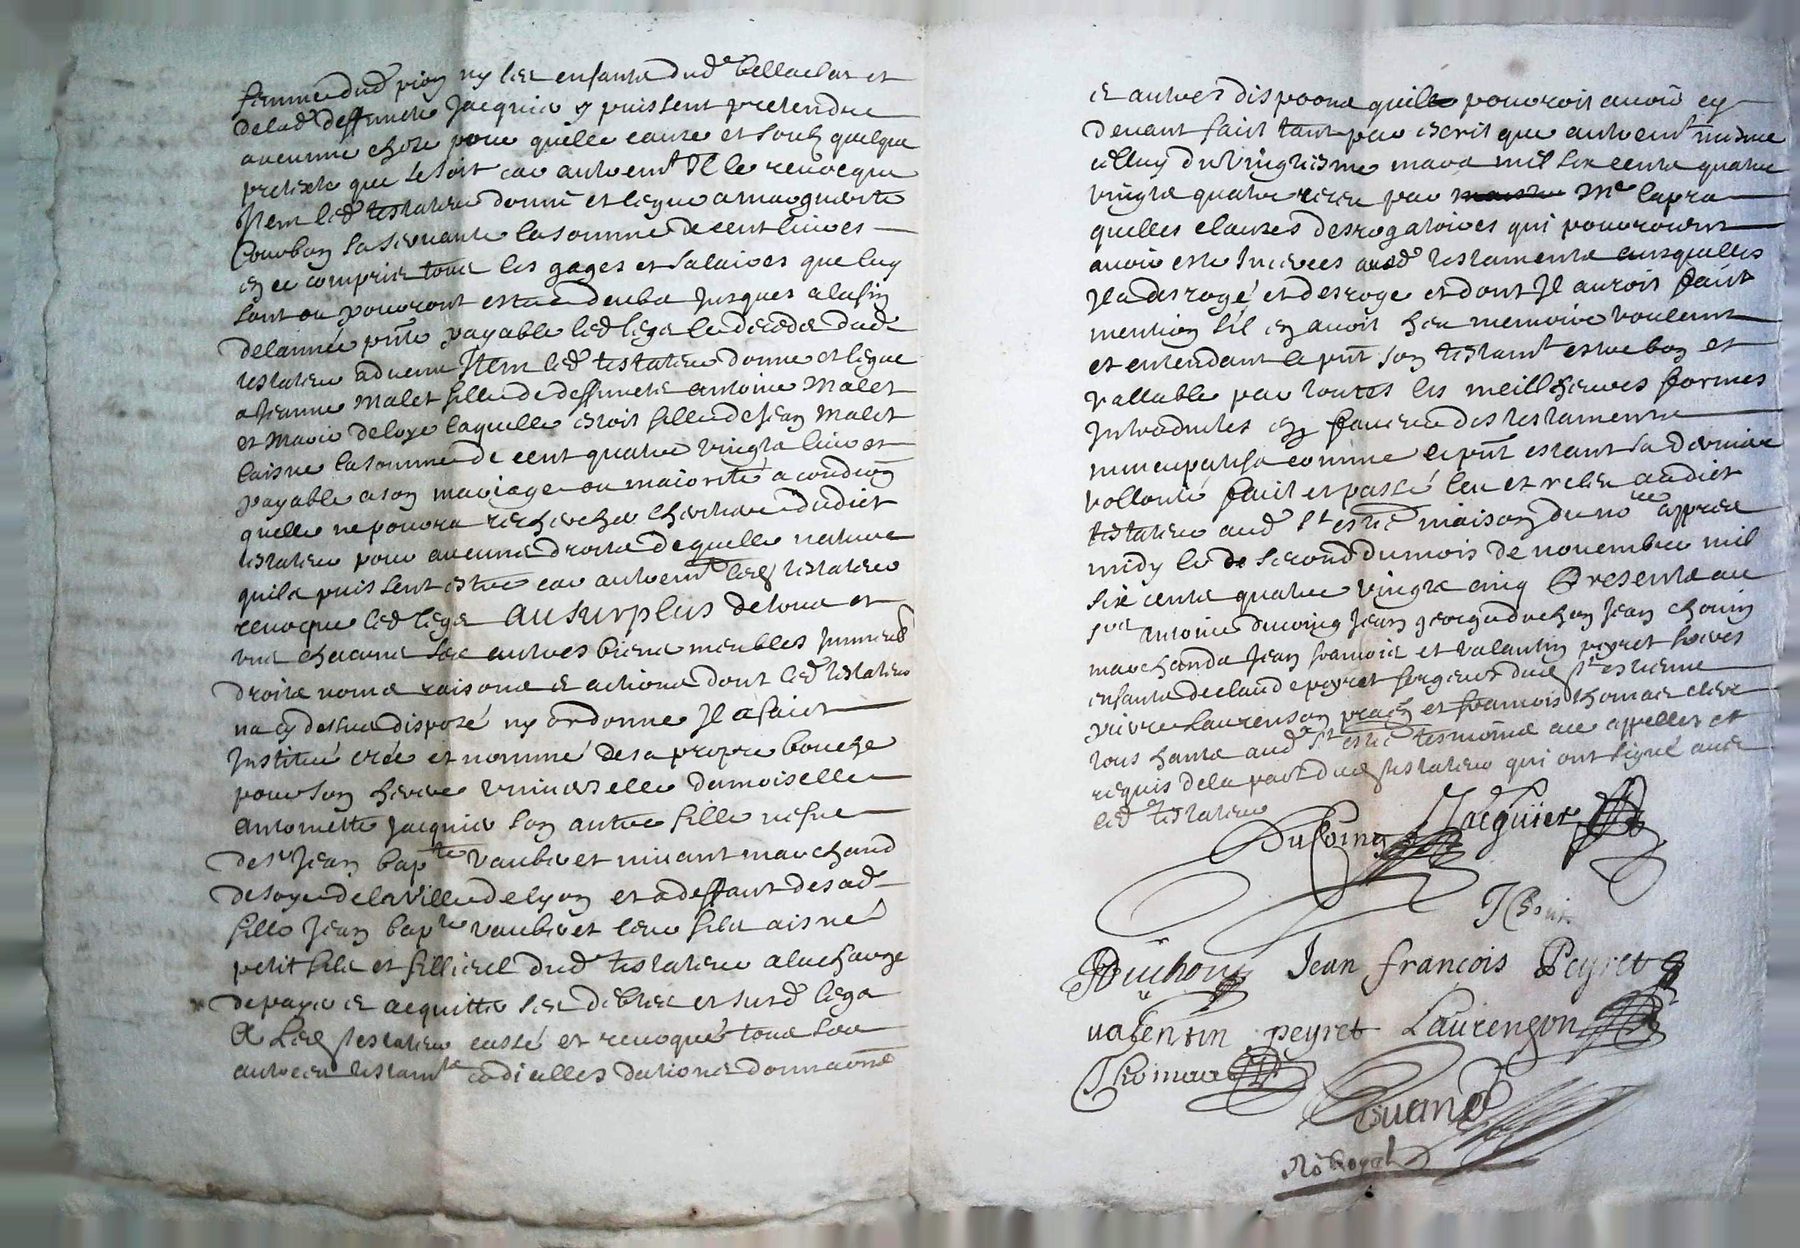 femme dud pion ny les enfants dud bellaclat et
delad deffuncte Jacquier y puissent pretendre
aucunne chose pour quelle cause et soubz quelque
pretexte que se soit car autremt Il le revocque
Item led testateur donne et legue a margueritte
Courbon sa servante la somme de cent livres
en ce compris tous les gages et salaires que luy
sont ou pourront estre deubs Jusques a la fin
de lannee pnte payable led legs le decedz dud
testateur advenu Item led testateur donne et legue
a Jeanne Malet fille de deffuncts antoine Malet
et Marie deloye laquelle estoit fille de Jean Malet
laisne la somme de cent quatre vingts livres
payable a son mariage ou maiorité a condion
quelle ne pourra rechercher lheritier dudict
testateur pour aucuns droits de quelle nature
quils puissent estre car autremt led testateur
revocque led legs Au surplus de tous et
uns chacuns ses autres biens meubles Immeubl
droits noms raisons et actions dont led testateur
na cy dessus disposé ny ordonne Il a faict
Institué créé et nommé de sa propre bouche
pour son heritiere universelle damoiselle
antoinette Jacquier son autre fille vefve
de sr Jean bapte vaubert vivant marchand
de soye de la Ville de lyon et a deffaut de sad
fille Jean bapte vaubert leur fils aisné
petit fils et fillieul dud testateur a la charge
de payer et acquitter ses debtes et susd legs
A Led testateur cassé et revoqué tous ses
autres testamts codicilles dations donnaons
et autres dispoons quil pourroit avoir cy
devant faict tant par escrit que autremt mesme
celluy du vingtiesme mars mil six cents quatre
vingts quatre receu par Me lapra
quelles clauses desrogatoires qui pourroient
avoir esté Inserees ausd testaments ausquelles
Il a desrogé et desroge et dont Il auroit faict
mention sil en avoit heu memoire voulant
et entendant le pnt son testamt estre bon et
vallable par toutes les meilheures formes
Introduites en faveur des testaments
nuncupatifs comme le pnt estant sa derniere
vollonté faict et passé leu et releu audict
testateur aud St estne maison du nore appres
midy le second du mois de novembre mil
six cents quatre vingts cinq Presents au
sieur antoine ducoing Jean george duchon Jean chouin
marchands Jean francois et valantin peyret freres
enfants de claude peyret forgeur dud St estienne
pierre Laurenson prach et francois thomas clerc
tous hants aud St estne tesmoins ace appelles et
requis de la part dud testateur qui ont signé avec
led testateur
DuCoing Jacquier
Duchon Jean francois Peyret
valentin peyret Laurençon
Thomas